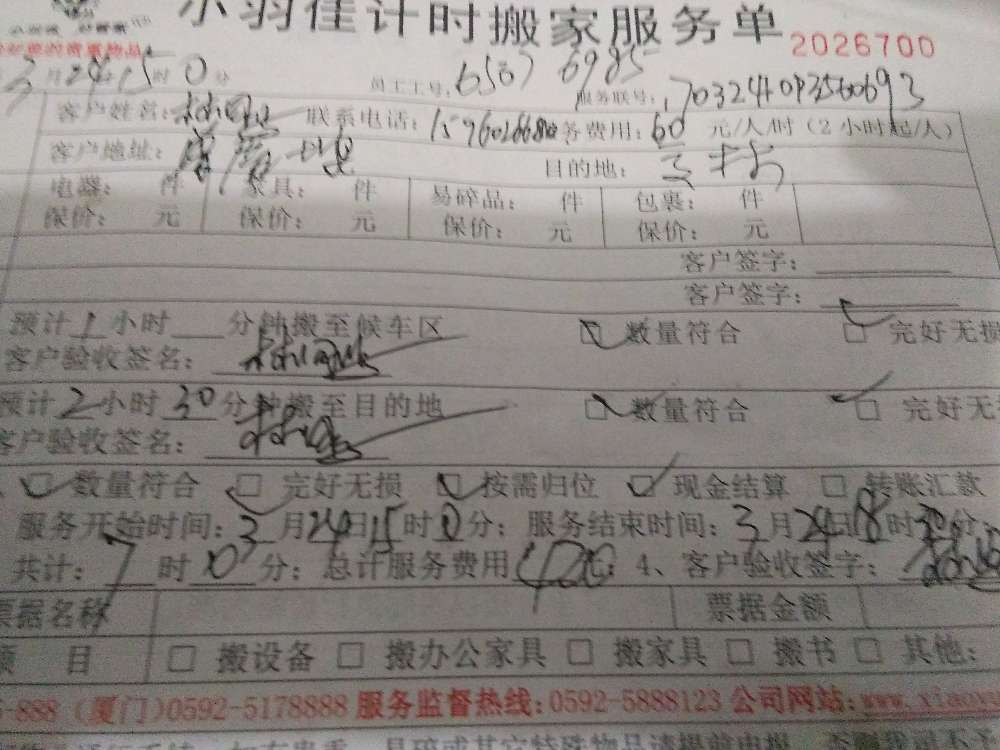 小羽佳计时搬家服务单 2026700
3月24 15时0分 员工工号:6507 6985 服务联号:170324103560693
客户姓名: 联系电话: 务费用:60元/人/时（2小时起/人）
客户地址: 目的地:
电器: 件 家具: 件 易碎品: 件 包裹: 件
保价: 元 保价: 元 保价: 元 保价: 元
客户签字:
客户签字:
预计1小时 分钟搬至候车区 数量符合 完好无损
客户验收签名:
预计2小时30分钟搬至目的地 数量符合 完好无
客户验收签名:
数量符合 完好无损 按需归位 现金结算 转账汇款
服务开始时间:3月24日15时0分; 服务结束时间:3月24日18时30分;
共计:7时0分; 总计服务费用420; 4、客户验收签字:
票据名称 票据金额
项 目 搬设备 搬办公家具 搬家具 搬书 其他:
5-888 (厦门)0592-5178888 服务监督热线:0592-5888123 公司网站:www.xiaoyu